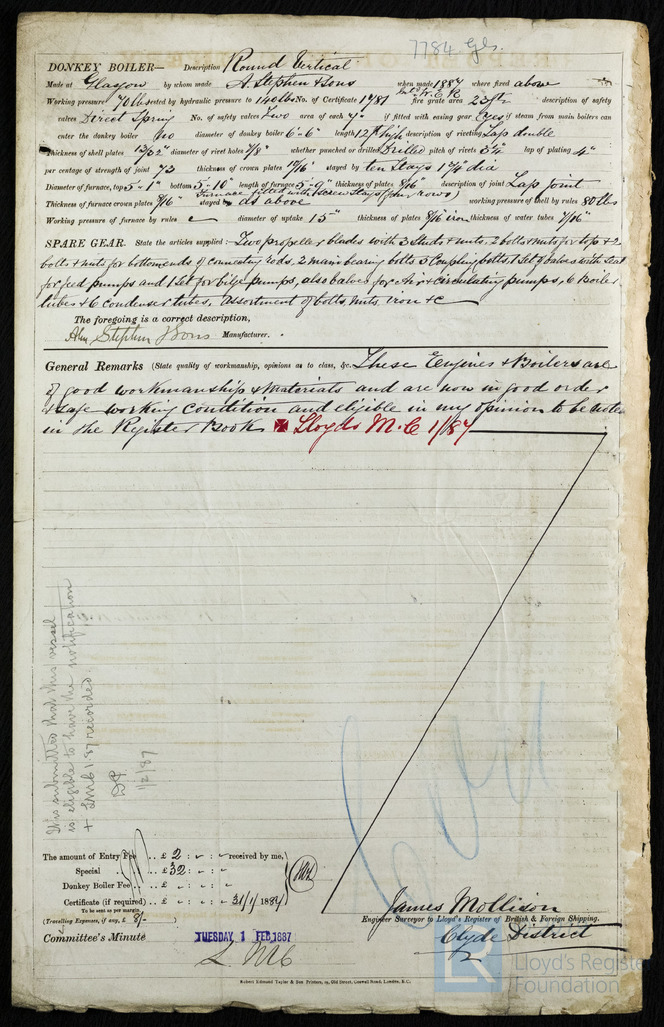 7784 Gls.
DONKEY BOILER— Description Round Vertical
Made at Glasgow by whom made A. Stephen & Sons when made 1887 where fixed above
Working pressure 70 lbs tested by hydraulic pressure to 140 lbs No. of Certificate 1781 fire grate area 23 ft² description of safety
valves Direct Spring No. of safety valves Two area of each 7" if fitted with easing gear Yes if steam from main boilers can
enter the donkey boiler No diameter of donkey boiler 6'-6" length 12 ft high description of riveting Lap double
Thickness of shell plates 13/32" diameter of rivet holes 7/8" whether punched or drilled Drilled pitch of rivets 3 1/4" lap of plating 4"
per centage of strength of joint 73 thickness of crown plates 17/16" stayed by ten Stays 1 3/4" dia
Diameter of furnace, top 5'-1" bottom 5'-10" length of furnace 5'-9" thickness of plates 9/16" description of joint Lap Joint
Furnace fitted with screw Stays
Thickness of furnace crown plates 9/16" stayed by as above working pressure of shell by rules 80 lbs
Working pressure of furnace by rules diameter of uptake 15" thickness of plates 9/16 iron thickness of water tubes 7/16"
SPARE GEAR. State the articles supplied:— Two propeller blades with 3 Studs & nuts, 2 bolts & nuts for top & 2
bolts & nuts for bottom ends of connecting rods, 2 main bearing bolts 5 Coupling bolts 1 Set of valves with Seat
for feed pumps and 1 Set for bilge pumps, also valves for Air & circulating pumps, 6 Boiler
tubes & 6 condenser tubes, assortment of bolts, nuts, iron &c
The foregoing is a correct description,
Alex. Stephen & Sons Manufacturer.
General Remarks (State quality of workmanship, opinions as to class, &c. These Engines & Boilers are
of good workmanship & materials and are now in good order
& safe working condition and eligible in my opinion to be noted
in the Register Book ✠ Lloyds M.C 1/87
This submitted that this vessel
is eligible to have the notification
+ LMC 1.87 recorded.
1/2/87
The amount of Entry Fee .. £ 2 : - : - received by me,
Special .. £ 32 : - : -
Donkey Boiler Fee .. £ - : - : -
Certificate (if required) .. £ - : - : - 31/1/1887
To be sent as per margin.
(Travelling Expenses, if any, £ 8/- )
James Mollison
Engineer Surveyor to Lloyd's Register of British & Foreign Shipping.
Clyde District
Committee's Minute TUESDAY 1 FEB 1887
L M C
Lloyd's Register
Foundation
Robert Edmund Taylor & Son Printers, 19, Old Street, Goswell Road, London, E.C.